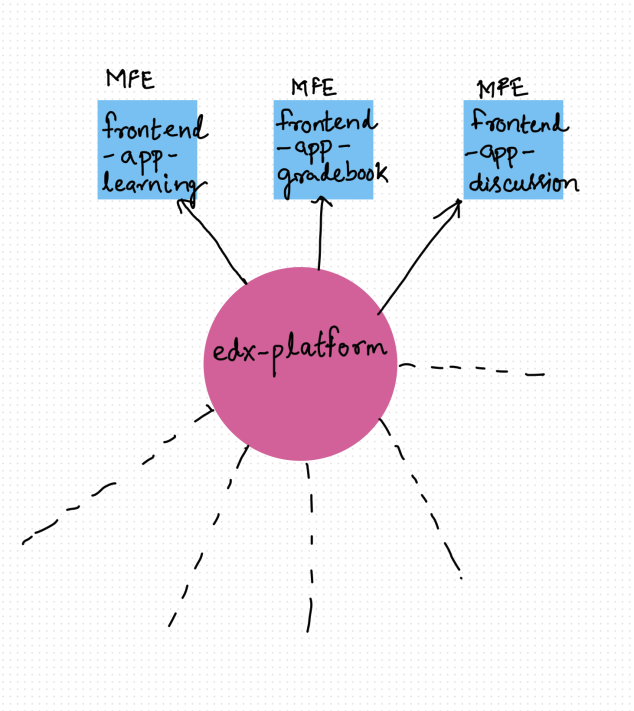 MFE
frontend
-app-
learning
MFE
frontend
-app-
gradebook
MFE
frontend
-app-
discussion
edx-platform